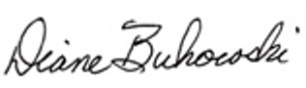 Diane Bukowski